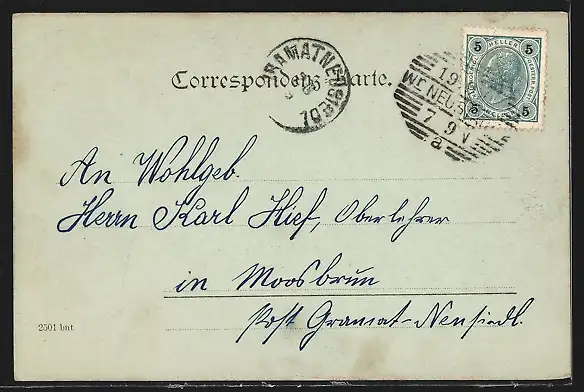 5 HELLER 5
5 5
GRAMATNEUSIEDL
Correspondenz-Karte.
WR. NEUST
7 9 V
a
An Wohlgeb.
Herrn Karl Hief, Oberlehrer
in Moosbrun
Post Gramat-Neusiedl.
2501 bnt